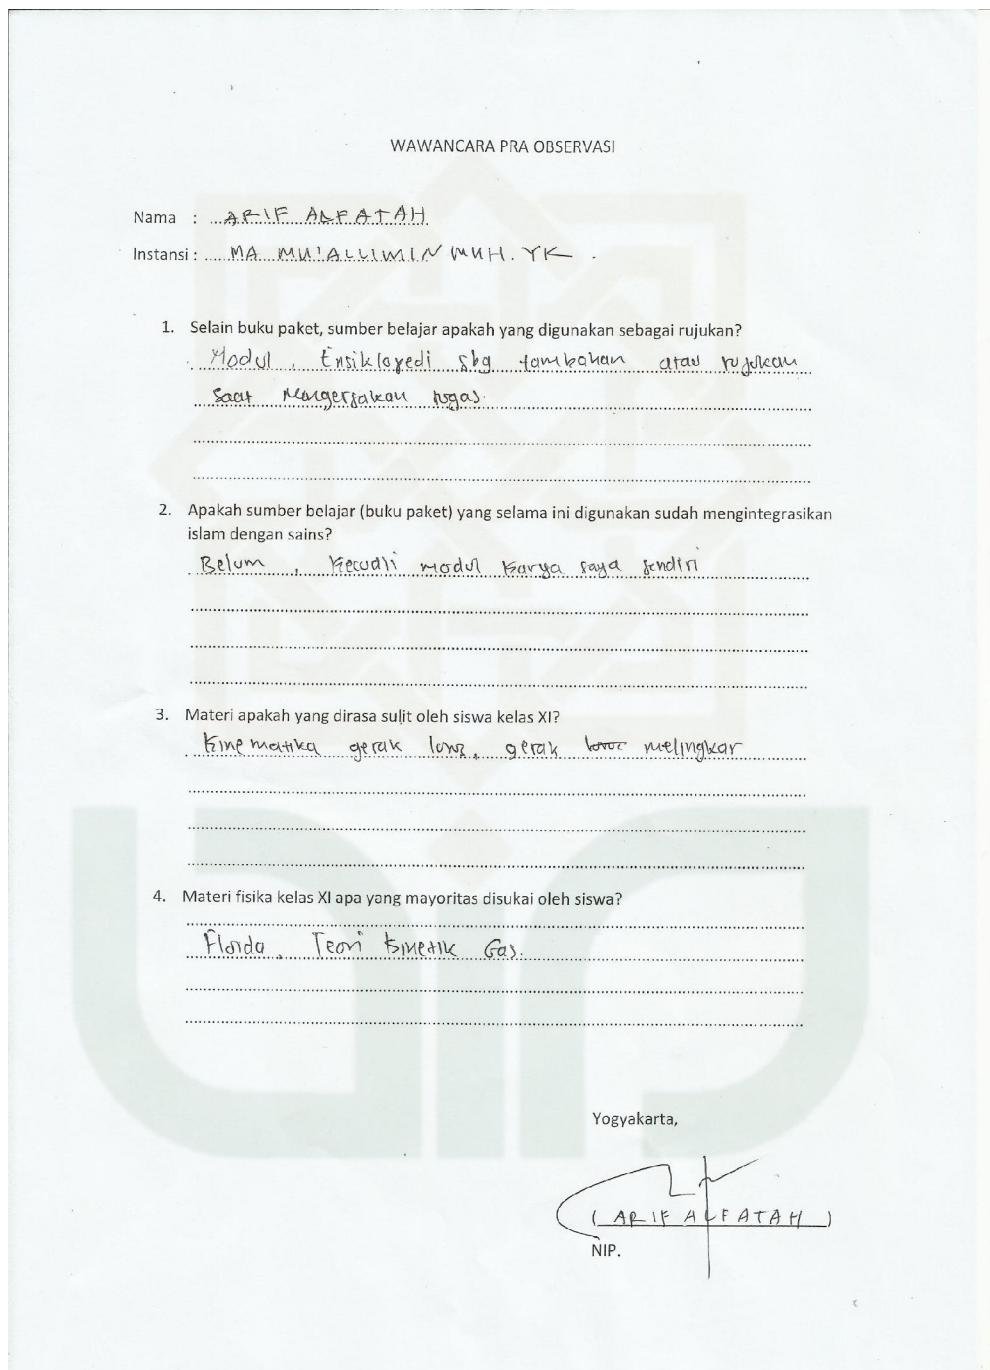 WAWANCARA PRA OBSERVASI
Nama : ARIF ALFATAH
Instansi : MA MU'ALLIMIN MUH. YK
1. Selain buku paket, sumber belajar apakah yang digunakan sebagai rujukan?
Modul, Ensiklopedi sbg tambahan atau rujukan
saat mengerjakan tugas.
2. Apakah sumber belajar (buku paket) yang selama ini digunakan sudah mengintegrasikan
islam dengan sains?
Belum, kecuali modul karya saya sendiri
3. Materi apakah yang dirasa sulit oleh siswa kelas XI?
Kinematika gerak lurus, gerak melingkar
4. Materi fisika kelas XI apa yang mayoritas disukai oleh siswa?
Fluida, Teori Kinetik Gas.
Yogyakarta,
( ARIF ALFATAH )
NIP.